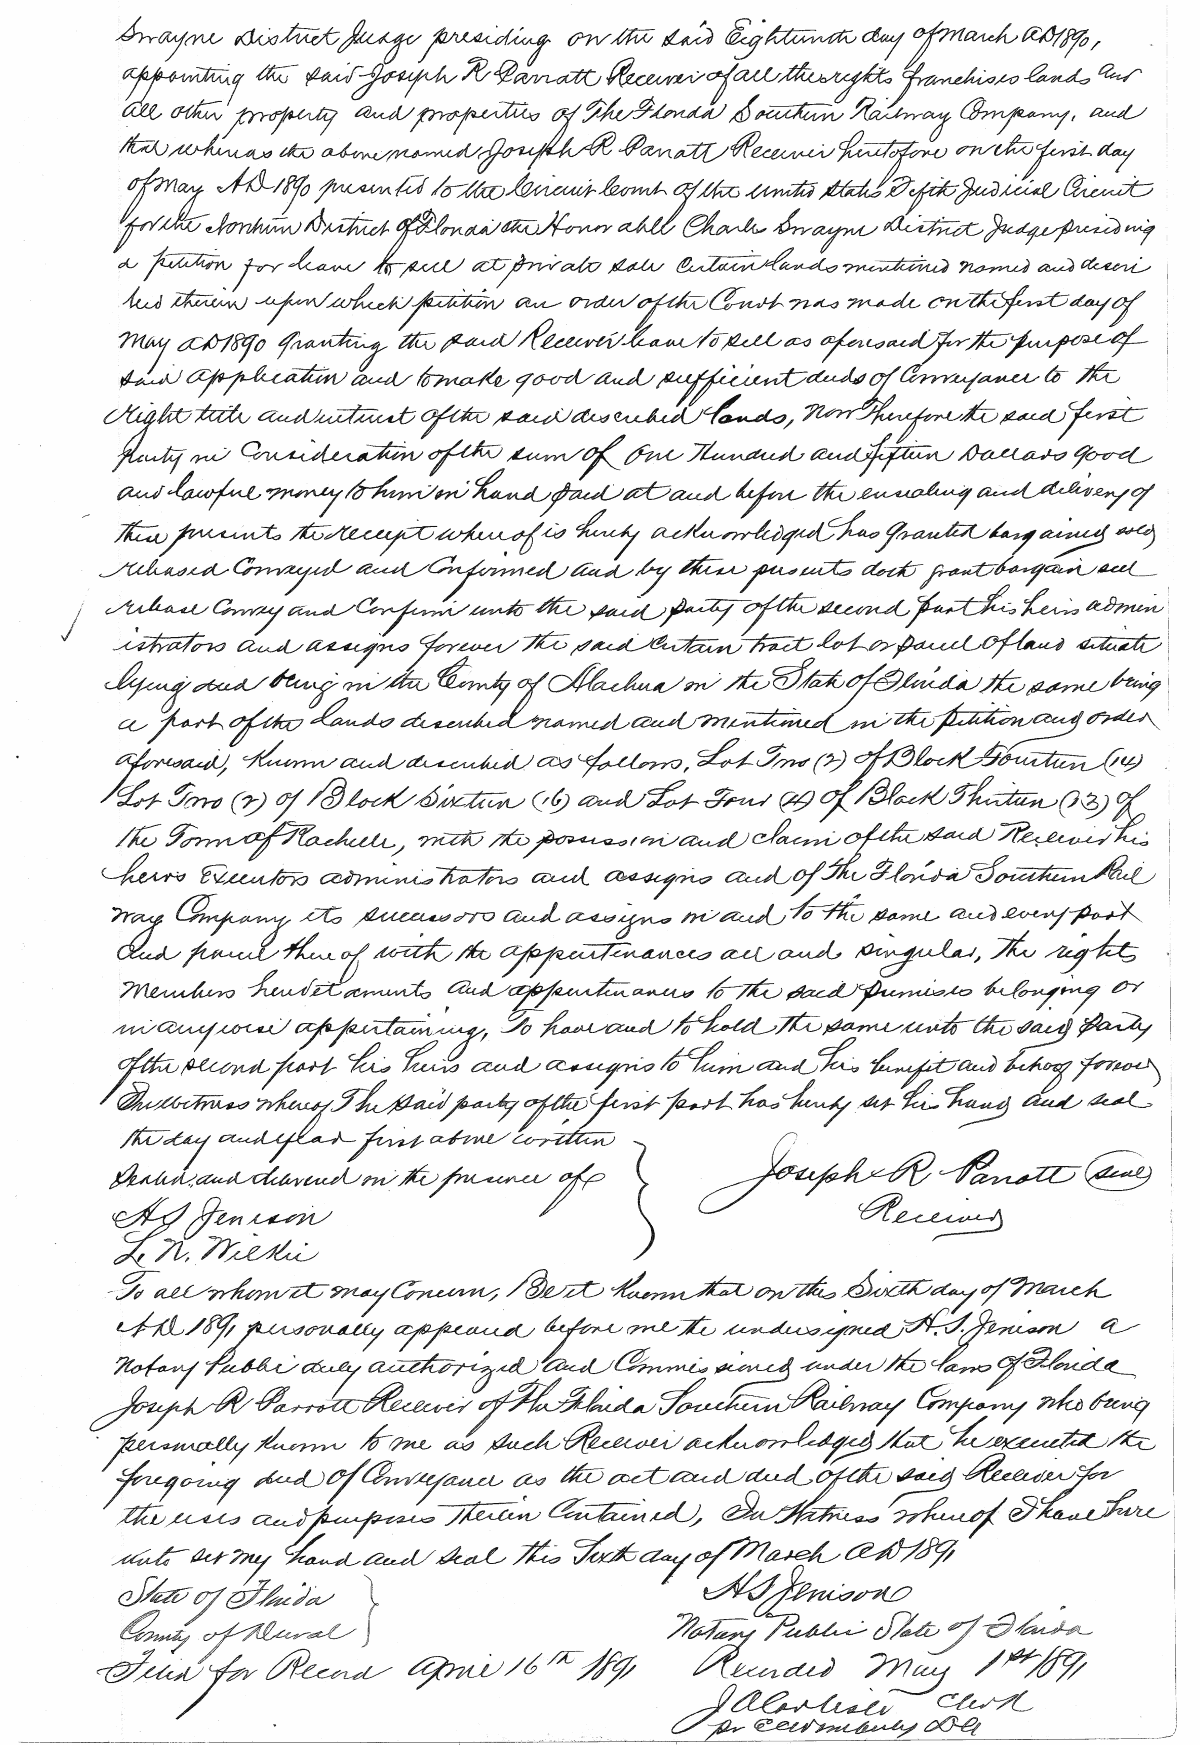 Swayne District Judge presiding on the said Eighteenth day of March AD 1890,
appointing the said Joseph R Parrott Receiver of all the rights franchises lands and
all other property and properties of The Florida Southern Railway Company, and
that whereas the above named Joseph R Parrott Receiver heretofore on the first day
of May AD 1890 presented to the Circuit Court of the United States Fifth Judicial Circuit
for the Northern District of Florida the Honorable Charles Swayne District Judge presiding
a petition for leave to sell at private sale certain lands mentioned named and descri
bed therein upon which petition an order of the Court was made on the first day of
May AD 1890 granting the said Receiver leave to sell as aforesaid for the purpose of
said application and to make good and sufficient deeds of Conveyance to the
right title and interest of the said described lands, Now Therefore the said first
party in Consideration of the sum of One Hundred and fifteen Dollars good
and lawful money to him in hand paid at and before the ensealing and delivery of
these presents the receipt whereof is hereby acknowledged has granted bargained sold
released Conveyed and Confirmed and by these presents doth grant bargain sell
release Convey and Confirm unto the said party of the second part his heirs admin
istrators and assigns forever the said certain tract lot or parcel of land situate
lying and being in the County of Alachua in the State of Florida the same being
a part of the lands described named and mentioned in the petition and order
aforesaid, Known and described as follows, Lot Two (2) of Block Fourteen (14)
Lot Two (2) of Block Sixteen (16) and Lot Four (4) of Block Thirteen (13) of
the Town of Rochelle, with the possession and claim of the said Receiver his
heirs Executors administrators and assigns and of The Florida Southern Rail
way Company its successors and assigns in and to the same and every part
and parcel thereof with the appurtenances all and singular, the rights
Members hereditaments and appurtenances to the said premises belonging or
in anywise appertaining, To have and to hold the same unto the said party
of the second part his heirs and assigns to him and his benefit and behoof forever
In witness whereof The said party of the first part has hereby set his hand and seal
the day and year first above written
Sealed and delivered in the presence of
Joseph R. Parrott (seal)
Receiver
H S Jenison
L. N. Wilkie
To all whom it may Concern, Be it Known that on this Sixth day of March
AD 1891 personally appeared before me the undersigned H. S. Jenison a
Notary Public duly authorized and Commissioned under the laws of Florida
Joseph R Parrott Receiver of The Florida Southern Railway Company who being
personally Known to me as such Receiver acknowledged that he executed the
foregoing deed of Conveyance as the act and deed of the said Receiver for
the uses and purposes therein Contained, In Witness whereof I have here
unto set my hand and seal this Sixth day of March AD 1891
State of Florida
County of Duval
H S Jenison
Notary Public State of Florida
Filed for Record April 16th 1891
Recorded May 1st 1891
J A Carlisle Clerk